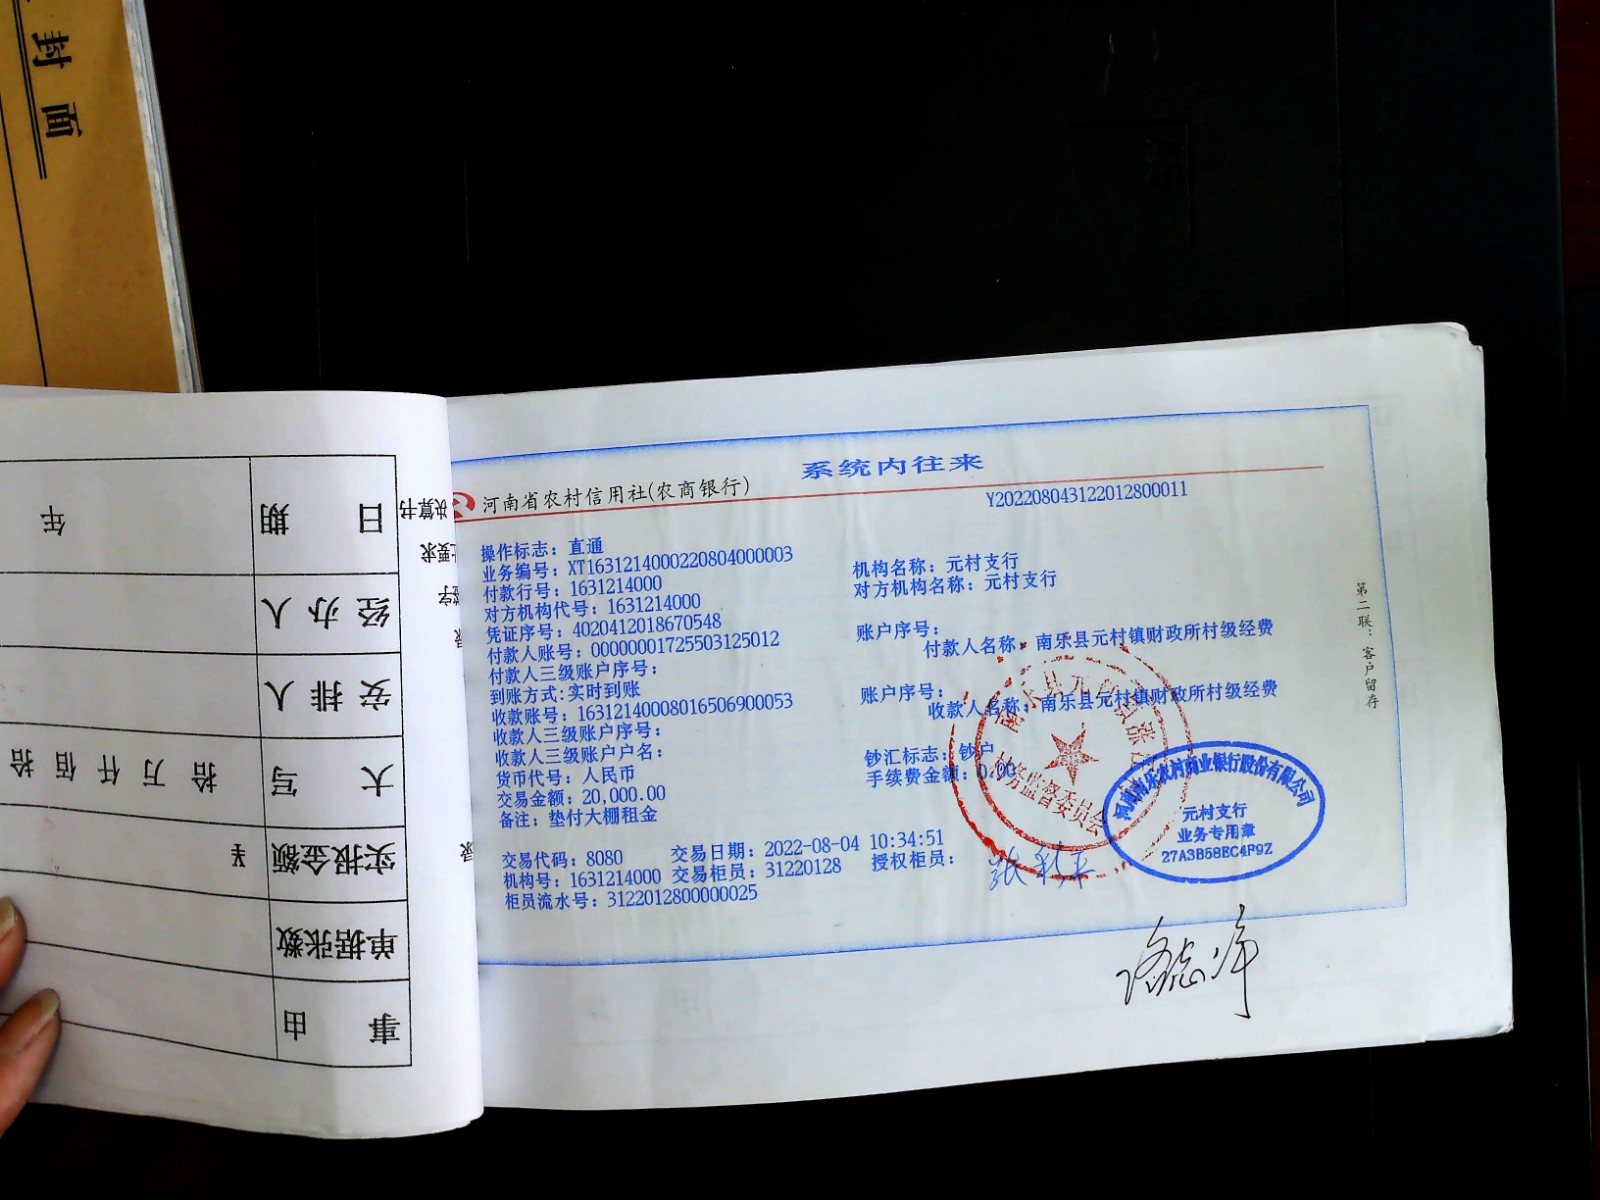 封面
日期
年
经办人
安排人
大写
拾万仟佰拾
实报金额
¥
单据张数
事由
决算书
系统内往来
河南省农村信用社(农商银行)
Y202208043122012800011
操作标志：直通
业务编号：XT1631214000220804000003
机构名称：元村支行
付款行号：1631214000
对方机构名称：元村支行
对方机构代号：1631214000
凭证序号：4020412018670548
账户序号：
付款人账号：00000001725503125012
付款人名称：南乐县元村镇财政所村级经费
付款人三级账户序号：
到账方式：实时到账
账户序号：
收款账号：16312140008016506900053
收款人名称：南乐县元村镇财政所村级经费
收款人三级账户序号：
收款人三级账户户名：
钞汇标志：钞户
货币代号：人民币
手续费金额：0.00
交易金额：20,000.00
备注：垫付大棚租金
交易代码：8080 交易日期：2022-08-04 10:34:51
机构号：1631214000 交易柜员：31220128 授权柜员：
柜员流水号：3122012800000025
第二联：客户留存
村务监督委员会
河南南乐农村商业银行股份有限公司
元村支行
业务专用章
27A3B58EC4F9Z